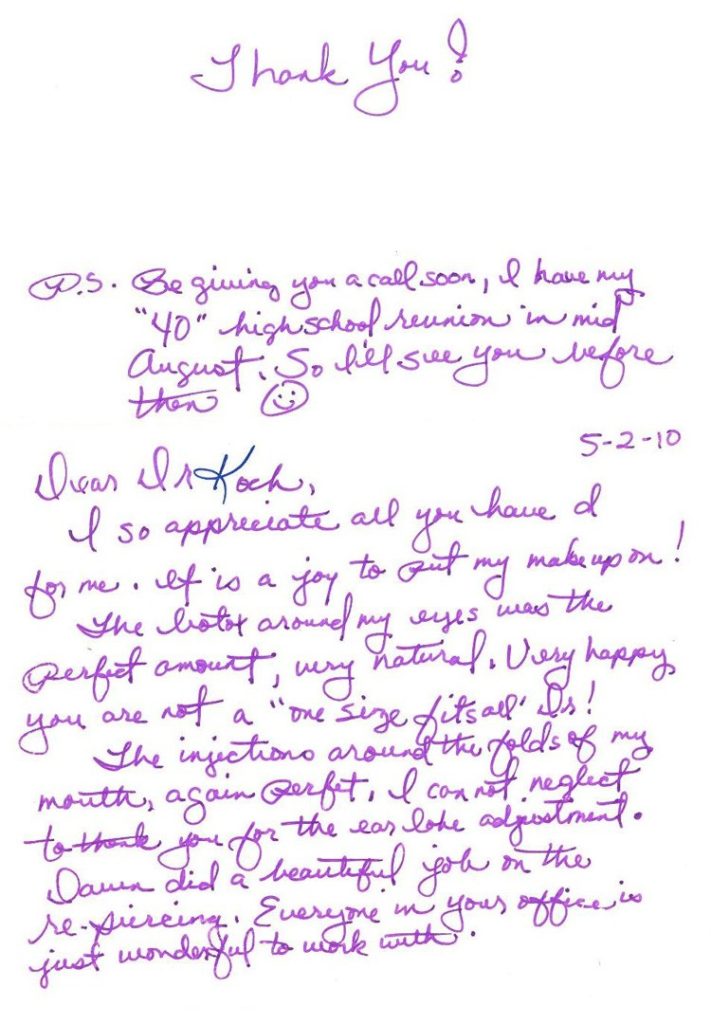 Thank You!
P.S. Be giving you a call soon, I have my
"40" high school reunion in mid
August. So I'll see you before
then
5-2-10
Dear Dr Koch,
I so appreciate all you have d
for me. It is a joy to put my makeup on!
The botox around my eyes was the
perfect amount, very natural. Very happy
you are not a "one size fits all" Dr!
The injections around the folds of my
mouth, again perfet. I can not neglect
to thank you for the ear lobe adjustment.
Dawn did a beautiful job on the
re-piercing. Everyone in your office is
just wonderful to work with.